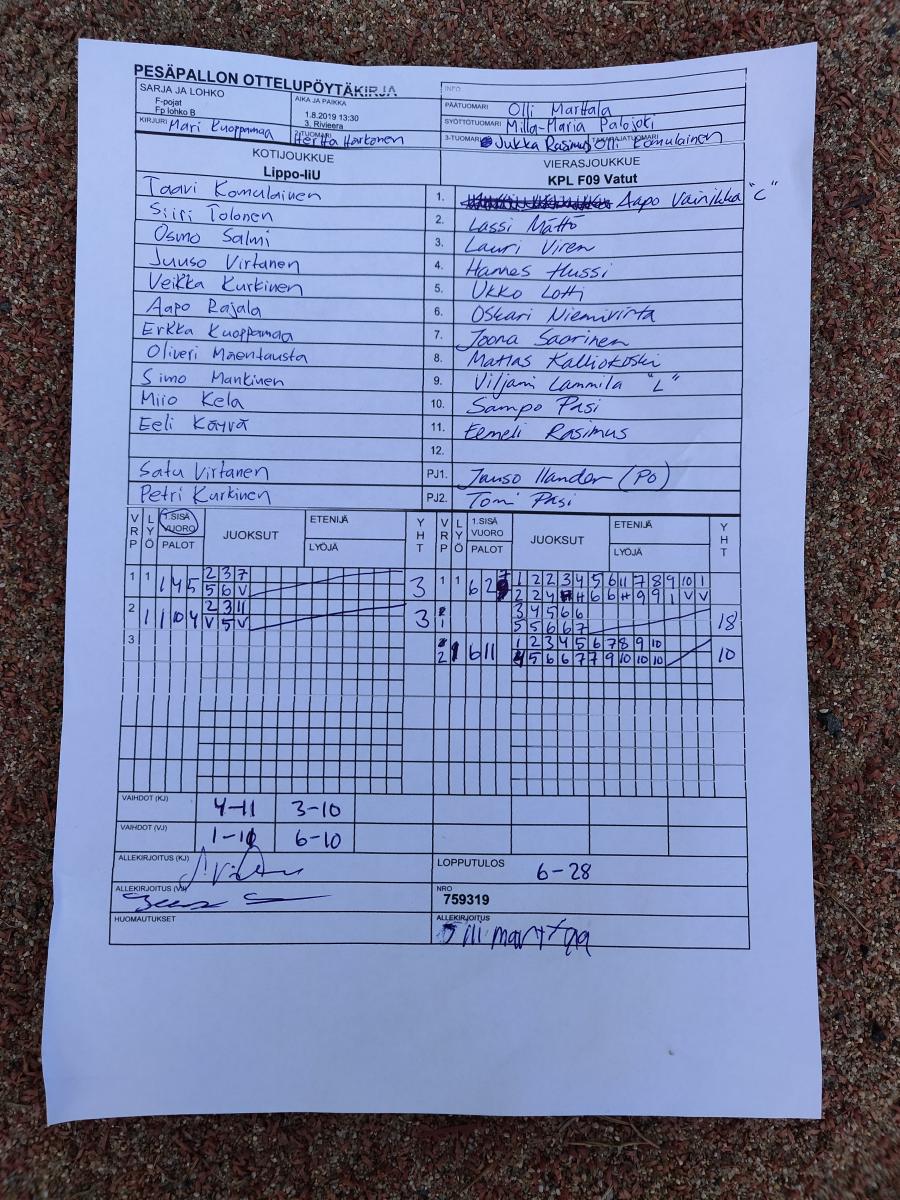 PESÄPALLON OTTELUPÖYTÄKIRJA
INFO
SARJA JA LOHKO
F-pojat
Fp lohko B
AIKA JA PAIKKA
1.8.2019 13:30
3, Rivieera
PÄÄTUOMARI Olli Marttala
SYÖTTÖTUOMARI Milla-Maria Palojoki
KIRJURI Mari Kuoppamaa
Hertta Harkonen
3-TUOMARI Jukka Rasimus
TAKARAJATUOMARI Olli Komulainen
KOTIJOUKKUE
Lippo-IiU
VIERASJOUKKUE
KPL F09 Vatut
Taavi Komulainen 1. Aapo Vainikka "C"
Siiri Tolonen 2. Lassi Mättö
Osmo Salmi 3. Lauri Viren
Juuso Virtanen 4. Hannes Hussi
Veikka Kurkinen 5. Ukko Lotti
Aapo Rajala 6. Oskari Niemivirta
Erkka Kuoppamaa 7. Joona Saarinen
Oliveri Maentausta 8. Matias Kalliokoski
Simo Mankinen 9. Viljami Lammila "L"
Miio Kela 10. Sampo Pasi
Eeli Käyvä 11. Eemeli Rasimus
12.
Satu Virtanen PJ1. (PO)
Petri Kurkinen PJ2. Tomi Pasi
VRP LYÖ 1.SISÄ VUORO PALOT JUOKSUT ETENIJÄ LYÖJÄ YHT VRP LYÖ 1.SISÄ VUORO PALOT JUOKSUT ETENIJÄ LYÖJÄ YHT
1 1 1 4 5 2 3 7 3 1 1 6 2 1 2 2 3 4 5 6 11 7 8 9 10 1
5 6 V
2 1 1 10 4 2 3 11 3 3 4 5 6 6 18
V 5 V 5 5 6 6 7
3 2 6 11 1 2 3 4 5 6 7 8 9 10 10
5 6 6 7 7 9 10 10 10
VAIHDOT (KJ) 4-11 3-10
VAIHDOT (VJ) 6-10
ALLEKIRJOITUS (KJ)
LOPPUTULOS 6-28
ALLEKIRJOITUS (VJ)
NRO
759319
HUOMAUTUKSET
ALLEKIRJOITUS